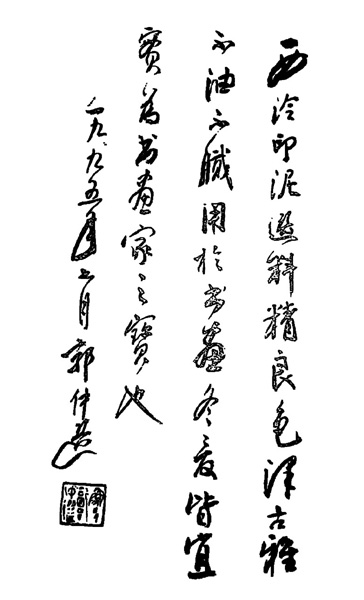 西泠印泥選料精良色澤古雅
不油不膩用於書畫冬夏皆宜
實為書畫家之寶也
一九九五年七月郭仲選